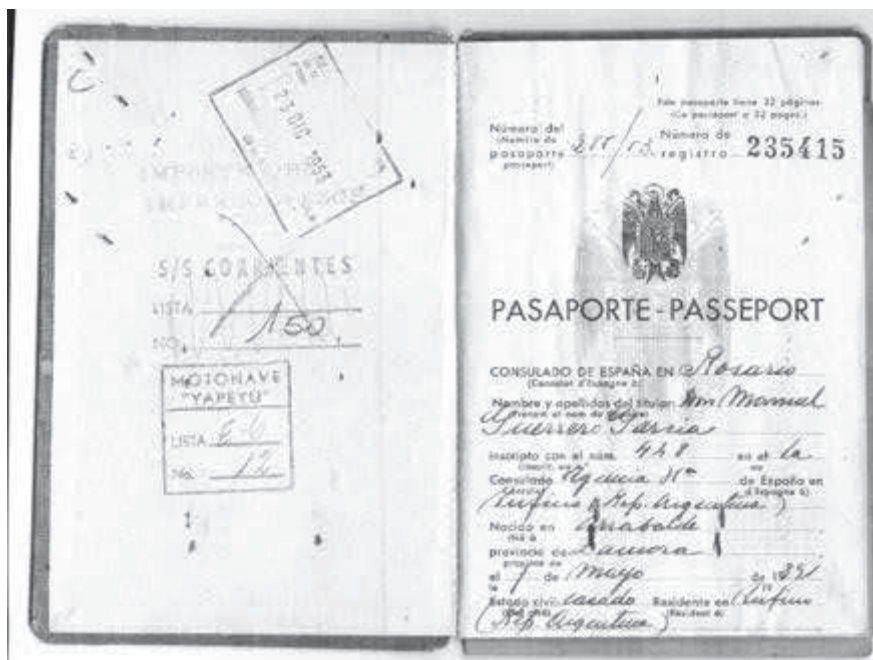 23 DIC 1953
S/S CORRIENTES
LISTA
NO. 150
MOTONAVE
"YAPEYÚ"
LISTA
No. 12
Este pasaporte tiene 32 páginas
(Ce passeport a 32 pages)
Número del
(Numéro de
pasaporte
passeport)
Número de
registro 235415
PASAPORTE - PASSEPORT
CONSULADO DE ESPAÑA EN Rosario
(Consulat d'Espagne à)
Nombre y apellidos del titular: Don Manuel
Guerrero García
Inscripto con el núm. 448 en el la
Consulado Agencia de España en
d'Espagne à)
(Rufino Rep. Argentina)
Nacido en Arrabalde
né à
provincia de Zamora
province de
el 7 de Mayo de 1891
le
Estado civil casado Residente en (Rufino
(Résident à)
(Rep. Argentina)